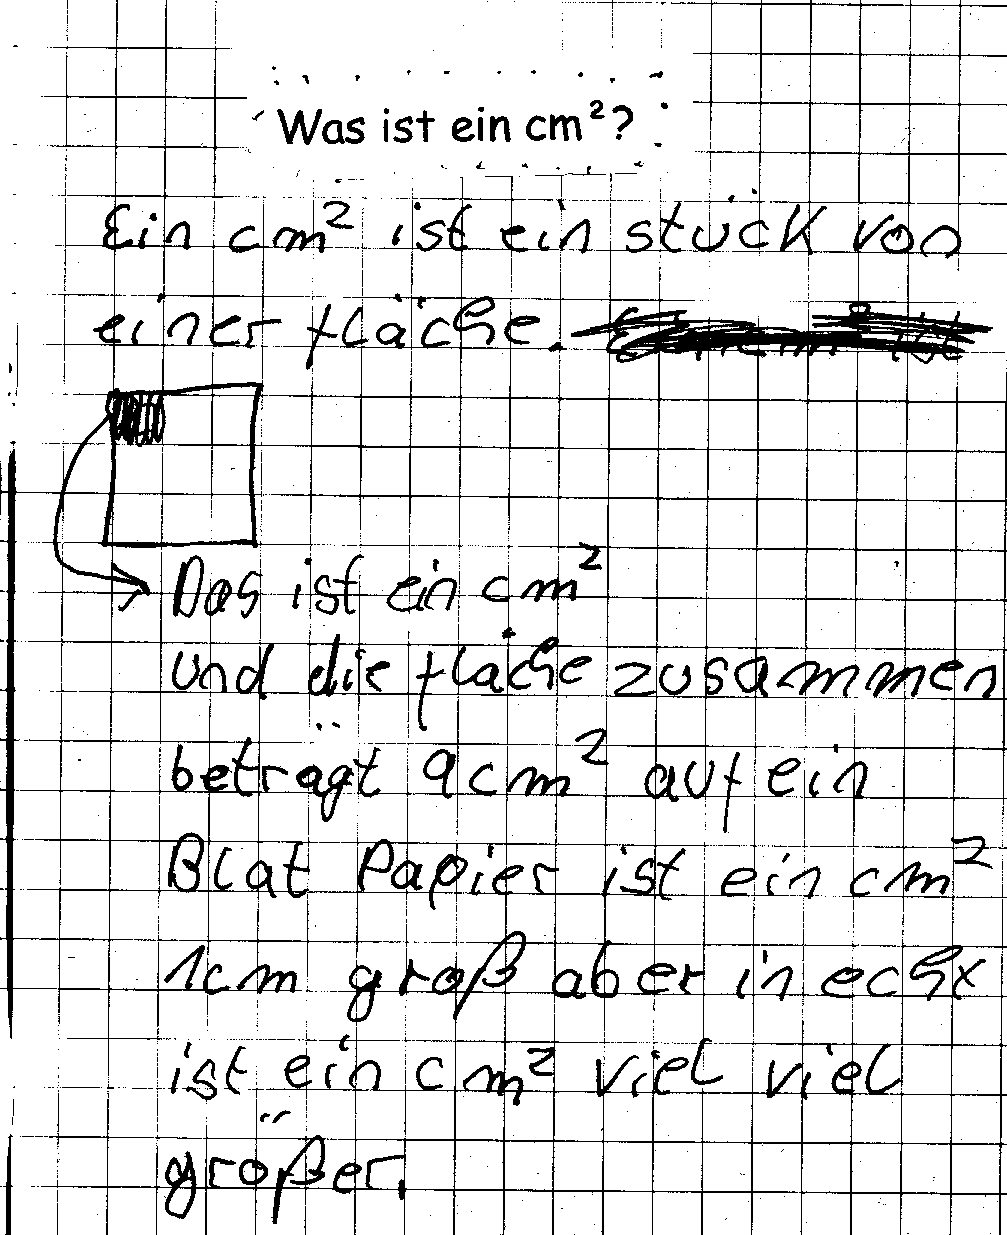 Was ist ein cm²?
Ein cm² ist ein stück von
einer fläche.
Das ist ein cm²
und die fläche zusammen
beträgt 9cm² auf ein
Blat Papier ist ein cm²
1cm groß aber in echt
ist ein cm² viel viel
größer.